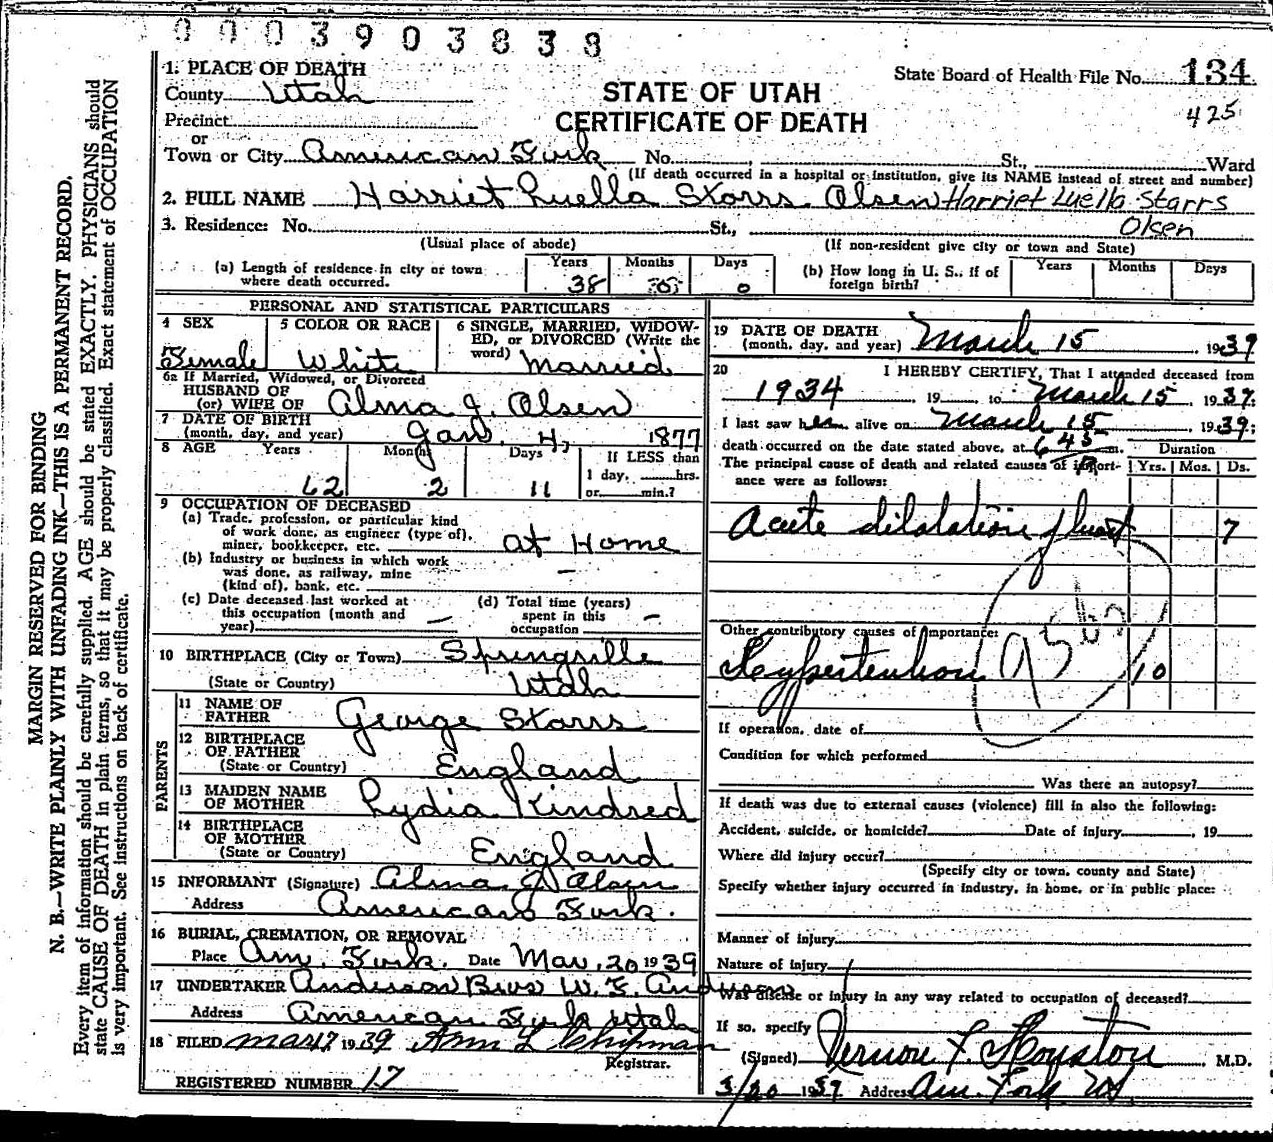 0003903838
State Board of Health File No. 134
425
STATE OF UTAH
CERTIFICATE OF DEATH
1. PLACE OF DEATH
County Utah
Precinct
or
Town or City American Fork No. St., Ward
(If death occurred in a hospital or institution, give its NAME instead of street and number)
2. FULL NAME Harriet Luella Starrs Olsen Harriet Luella Starrs
Olsen
3. Residence: No. St.,
(Usual place of abode) (If non-resident give city or town and State)
(a) Length of residence in city or town where death occurred. Years 38 Months Days 0
(b) How long in U. S., if of foreign birth? Years Months Days
PERSONAL AND STATISTICAL PARTICULARS
4 SEX Female
5 COLOR OR RACE White
6 SINGLE, MARRIED, WIDOWED, or DIVORCED (Write the word) Married
6a If Married, Widowed, or Divorced
HUSBAND OF
(or) WIFE OF Alma J. Olsen
7 DATE OF BIRTH
(month, day, and year) Jan. 4, 1877
8 AGE Years 62 Months 2 Days 11 If LESS than
1 day, hrs.
or min.?
9 OCCUPATION OF DECEASED
(a) Trade, profession, or particular kind
of work done, as engineer (type of),
miner, bookkeeper, etc. at Home
(b) Industry or business in which work
was done, as railway, mine
(kind of), bank, etc. —
(c) Date deceased last worked at
this occupation (month and
year) —
(d) Total time (years)
spent in this
occupation —
10 BIRTHPLACE (City or Town) Springville
(State or Country) Utah
PARENTS
11 NAME OF
FATHER George Starrs
12 BIRTHPLACE
OF FATHER
(State or Country) England
13 MAIDEN NAME
OF MOTHER Lydia Kindred
14 BIRTHPLACE
OF MOTHER
(State or Country) England
15 INFORMANT (Signature) Alma J Olsen
Address American Fork.
16 BURIAL, CREMATION, OR REMOVAL
Place Am. Fork. Date Mar. 20 1939
17 UNDERTAKER Anderson Bros W. E. Anderson
Address American Fork Utah
18 FILED Mar 17 1939 Ann L Chipman
Registrar.
REGISTERED NUMBER 17
19 DATE OF DEATH
(month, day, and year) March 15, 1939
20 I HEREBY CERTIFY, That I attended deceased from
1934, 19 to March 15, 1939;
I last saw her alive on March 15, 1939;
death occurred on the date stated above, at 6 45 P m.
Duration
The principal cause of death and related causes of importance were as follows: Yrs. Mos. Ds.
Acute dilatation of heart 7
Other contributory causes of importance:
Hypertension 10
If operation, date of
Condition for which performed
Was there an autopsy?
If death was due to external causes (violence) fill in also the following:
Accident, suicide, or homicide? Date of injury , 19
Where did injury occur?
(Specify city or town, county and State)
Specify whether injury occurred in industry, in home, or in public place:
Manner of injury
Nature of injury
Was disease or injury in any way related to occupation of deceased?
If so, specify
(Signed) Vernon F. Houston M.D.
3/20 1939 Address Am. Fork Ut
MARGIN RESERVED FOR BINDING
N. B.—WRITE PLAINLY WITH UNFADING INK—THIS IS A PERMANENT RECORD.
Every item of information should be carefully supplied. AGE should be stated EXACTLY. PHYSICIANS should
state CAUSE OF DEATH in plain terms, so that it may be properly classified. Exact statement of OCCUPATION
is very important. See instructions on back of certificate.